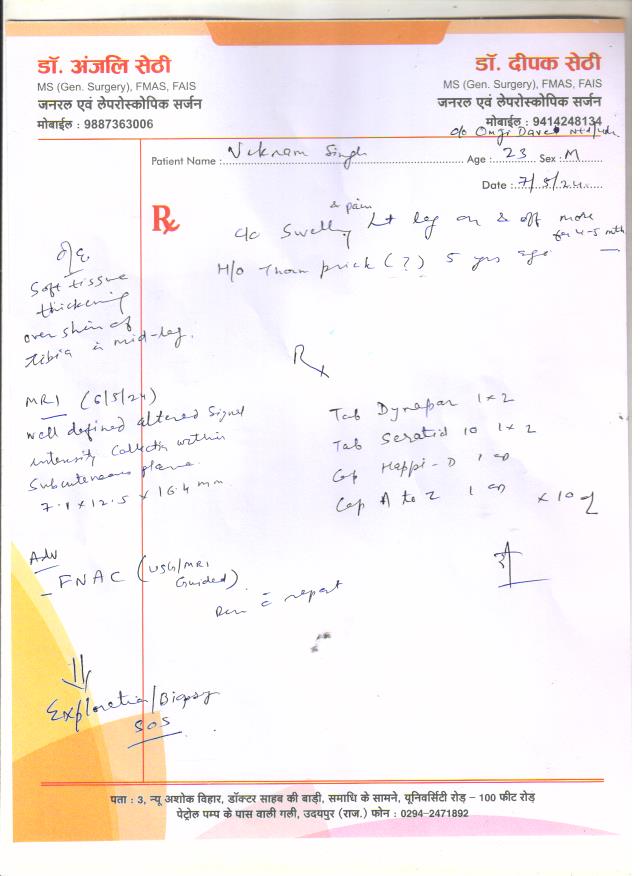 डॉ. अंजलि सेठी
MS (Gen. Surgery), FMAS, FAIS
जनरल एवं लेपरोस्कोपिक सर्जन
मोबाईल : 9887363006
डॉ. दीपक सेठी
MS (Gen. Surgery), FMAS, FAIS
जनरल एवं लेपरोस्कोपिक सर्जन
मोबाईल : 9414248134
c/o Omji Dave
Patient Name : Vikram Singh Age : 23 Sex : M
Date : 7/5/24
Rx
& pain
c/o Swelling Lt leg on & off more
for 4-5 mth
H/o Thorn prick (?) 5 yrs ago
O/E
Soft tissue
thickening
over shin of
tibia in mid-leg.
MRI (6/5/24)
well defined altered signal
intensity collection within
Subcutaneous plane.
7.1 x 12.5 x 16.4 mm
Adv
- FNAC (USG/MRI
Guided)
Rev c report
Exploration/Biopsy
SOS
Rx
Tab Dynapar 1 x 2
Tab Seratid 10 1 x 2
Cap Happi-D 1 OD
Cap A to Z 1 OD
x 10 d
पता : 3, न्यू अशोक विहार, डॉक्टर साहब की बाड़ी, समाधि के सामने, यूनिवर्सिटी रोड़ – 100 फीट रोड़
पेट्रोल पम्प के पास वाली गली, उदयपुर (राज.) फोन : 0294-2471892